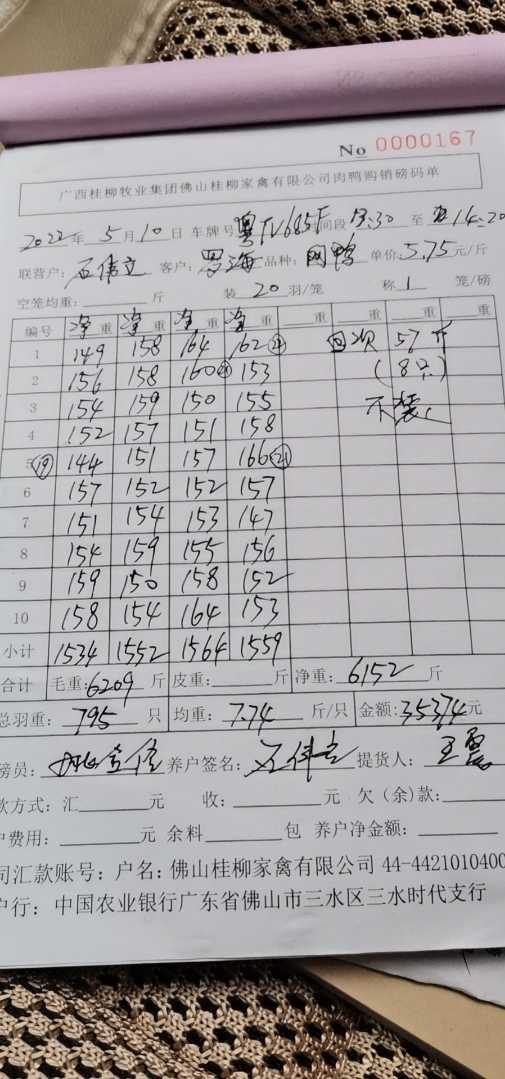 No 0000167
广西桂柳牧业集团佛山桂柳家禽有限公司肉鸭购销磅码单
2022年 5月10日 车牌号 粤 间段 至 14:20
联营户: 石伟立 客户: 罗海 品种: 肉鸭 单价:5.75元/斤
空笼均重: 斤 装 20 羽/笼 称 1 笼/磅
编号 净重 净重 净重 净重 重 重 重 重
1 149 158 164 162 回次 57斤
2 156 158 160 153 (8只)
3 154 159 150 155 不装
4 152 157 151 158
5 (19) 144 151 157 166 (21)
6 157 152 152 157
7 151 154 153 147
8 154 159 155 156
9 159 150 158 152
10 158 154 164 153
小计 1534 1552 1564 1559
合计 毛重:6209 斤 皮重: 斤 净重: 6152 斤
总羽重: 795 只 均重: 7.74 斤/只 金额:35374元
磅员: 养户签名: 提货人:
款方式: 汇 元 收: 元 欠(余)款:
户费用: 元 余料 包 养户净金额:
司汇款账号: 户名: 佛山桂柳家禽有限公司 44-4421010400
户行: 中国农业银行广东省佛山市三水区三水时代支行